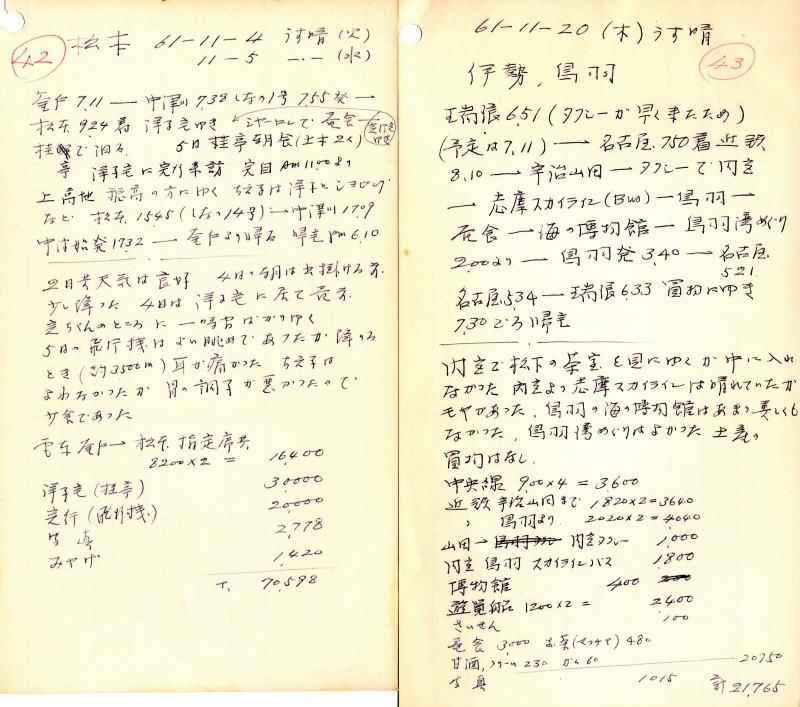 42
松本 61-11-4 うす晴 (火)
11-5 〃 (水)
釜戸 7.11 — 中津川 7.38 しなの1号 7.55発 —
松本 9.24着 洋子宅ゆき シャトレで昼食
桂亭で泊る 5日 桂亭朝食
洋子宅に定行来訪 定目 Am11.00より
上高地 穂高の方にゆく ちえ子は洋子とショッピング
など 松本 15.45 (しなの14号) — 中津川 17.09
中津始発 17.32 — 釜戸より帰る 帰宅 pm 6.10
2日共天気は良好 4日の朝は出掛ける前
少し降った 4日は洋子宅に居て
ちゃんのところに一時間ばかりゆく
5日の飛行機はよい眺めであったが降りる
とき (約3500m) 耳が痛かった ちえ子は
よわなかったが 胃の調子が悪かったので
少食であった
電車 釜戸 — 松本 指定席共
8200×2 = 16,400
洋子宅 (桂亭) 30,000
定行 (飛行機) 20,000
写真 2,778
みやげ 1,420
T. 70,598
43
61-11-20 (木) うす晴
伊勢、鳥羽
瑞浪 6.51 (タクシーが早く来たため)
(予定は 7.11) — 名古屋 7.50着 近鉄
8.10 — 宇治山田 — タクシーで内宮
— 志摩スカイライン (Bus) — 鳥羽 —
昼食 — 海の博物館 — 鳥羽湾めぐり
2.00より — 鳥羽発 3.40 — 名古屋
5.21
名古屋 5.34 — 瑞浪 6.33 買物にゆき
7.30ごろ帰宅
内宮で松下の茶室を見にゆくが中に入れ
なかった 内宮より志摩スカイラインは晴れていたが
モヤがあった、鳥羽の海の博物館はあまり美しくも
なかった、鳥羽湾めぐりはよかった 土産の
買物はなし.
中央線 900×4 = 3,600
近鉄 宇治山田まで 1820×2=3640
〃 鳥羽より 2020×2=4040
山田 — 内宮タクシー 1,000
内宮 鳥羽 スカイラインバス 1,800
博物館 400
遊覧船 1200×2 = 2,400
さいせん 100
昼食 3,000 お茶 480
甘酒、クリーム 230 ガム 60
20750
写真 1015 計 21,765